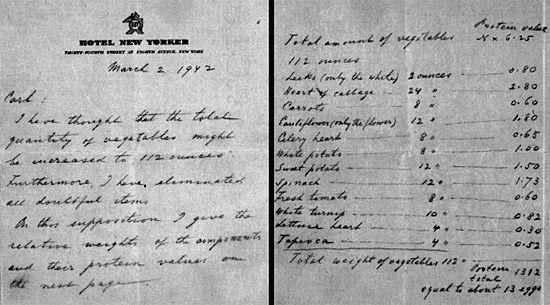 HOTEL NEW YORKER
THIRTY-FOURTH STREET AT EIGHTH AVENUE, NEW YORK
March 2 1942
Carl:
I have thought that the total
quantity of vegetables might
be increased to 112 ounces.
Furthermore, I have eliminated
all doubtful items.
On this supposition I give the
relative weights of the components
and their protein values on
the next page.
Protein value
Total amount of vegetables N x 6.25
112 ounces
Leeks (only the white) 2 ounces — 0.80
Heart of cabbage — 24 " — 2.80
Carrots — 8 " — 0.60
Cauliflower (only the flower) 12 " — 1.80
Celery heart — 8 " — 0.65
White potato — 8 " — 1.00
Sweet potato — 12 " — 1.50
Spinach — 12 " — 1.73
Fresh tomato — 8 " — 0.60
White turnip — 10 " — 0.82
Lettuce heart — 4 " — 0.30
Tapioca — 4 " — 0.52
Total weight of vegetables 112 " Protein total 13.12
equal to about 13 eggs